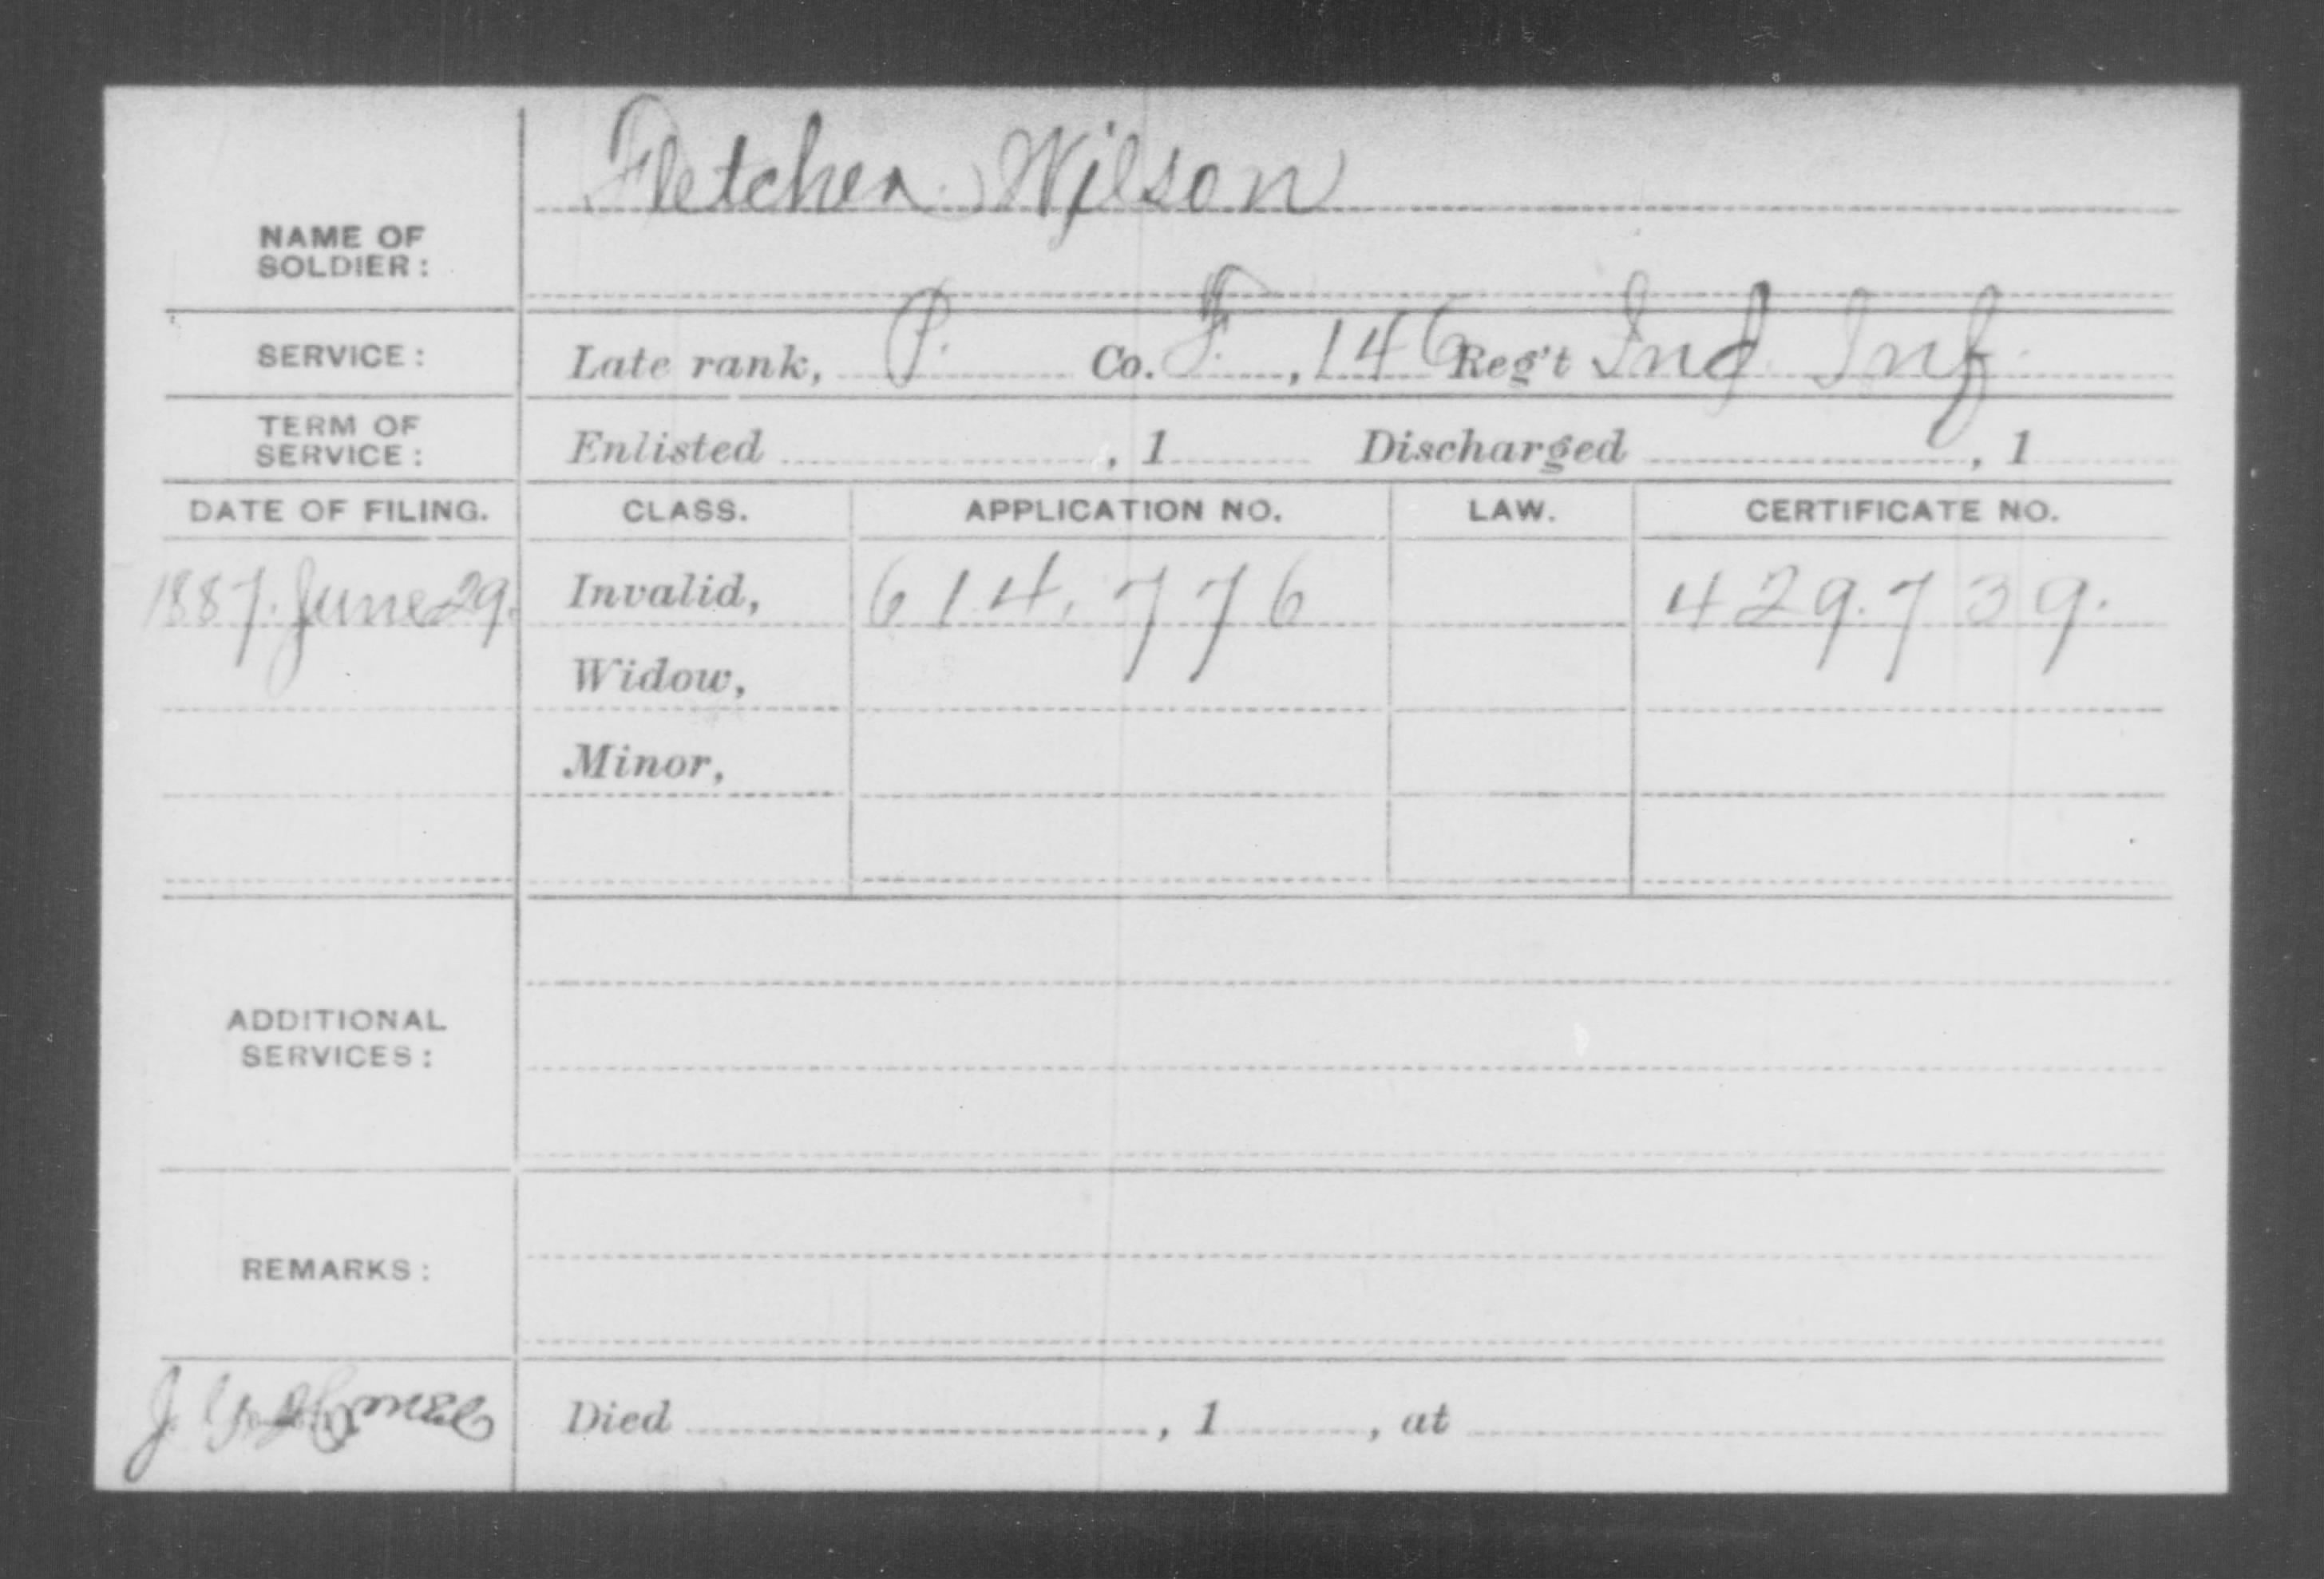 Fletcher Wilson
NAME OF
SOLDIER:
SERVICE: Late rank, P. Co. F. , 146 Reg't Ind Inf.
TERM OF
SERVICE: Enlisted , 1 Discharged , 1
DATE OF FILING. CLASS. APPLICATION NO. LAW. CERTIFICATE NO.
1887. June 29. Invalid, 614,776 429.739.
Widow,
Minor,
ADDITIONAL
SERVICES:
REMARKS:
Died , 1 , at